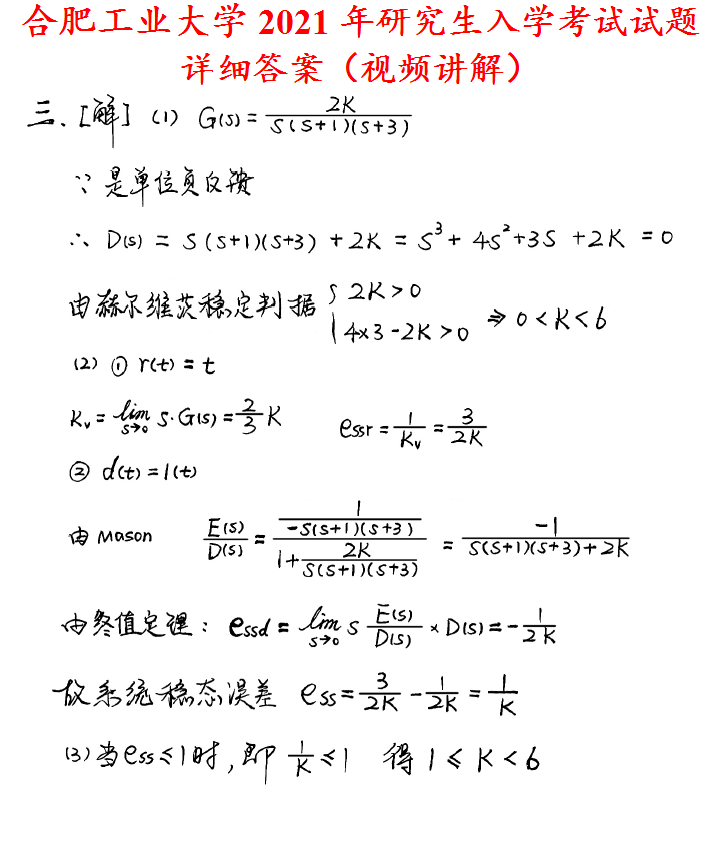 合肥工业大学 2021 年研究生入学考试试题
详细答案（视频讲解）
三、[解] (1) G(s) = 2K / S(S+1)(S+3)
∵ 是单位负反馈
∴ D(s) = S(S+1)(S+3) + 2K = S³ + 4S² + 3S + 2K = 0
由赫尔维茨稳定判据 { 2K > 0
4×3 - 2K > 0 ⇒ 0 < K < 6
(2) ① r(t) = t
Kv = lim S→0 S·G(s) = 2/3 K essr = 1/Kv = 3/2K
② d(t) = 1(t)
由 Mason E(s)/D(s) = (1 / -S(S+1)(S+3)) / (1 + 2K / S(S+1)(S+3)) = -1 / S(S+1)(S+3)+2K
由终值定理: essd = lim S→0 S E(s)/D(s) × D(s) = - 1/2K
故系统稳态误差 ess = 3/2K - 1/2K = 1/K
(3) 当 ess ≤ 1 时, 即 1/K ≤ 1 得 1 ≤ K < 6